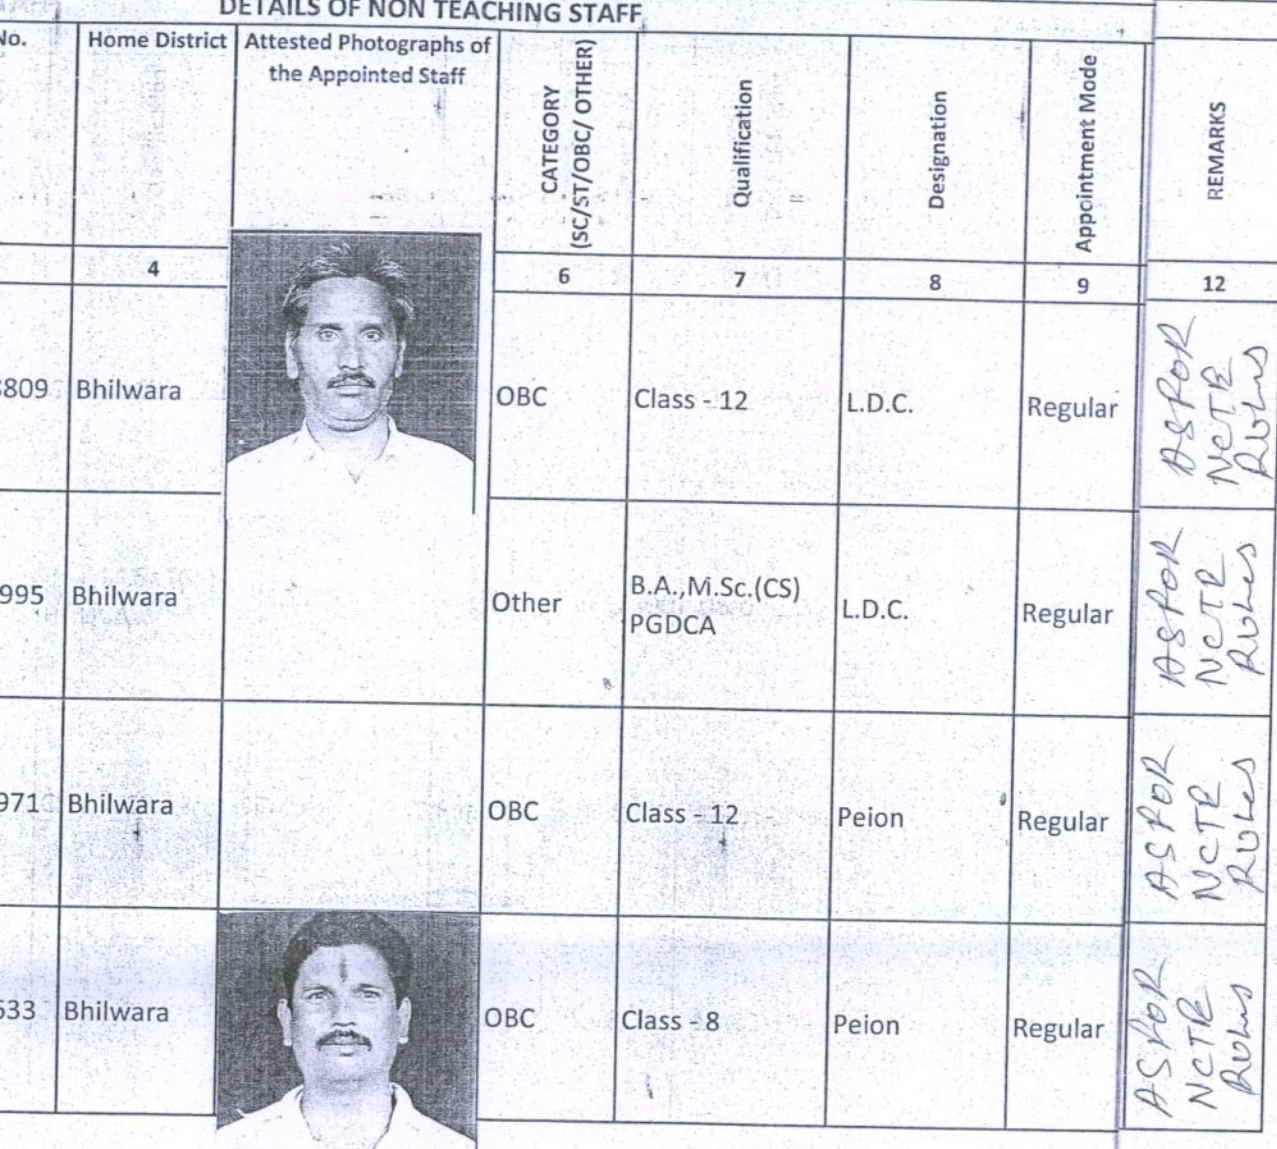 DETAILS OF NON TEACHING STAFF
No. Home District Attested Photographs of the Appointed Staff CATEGORY (SC/ST/OBC/ OTHER) Qualification Designation Appointment Mode REMARKS
4 6 7 8 9 12
3809 Bhilwara OBC Class - 12 L.D.C. Regular AS POR NCTR Rules
995 Bhilwara Other B.A.,M.Sc.(CS) PGDCA L.D.C. Regular AS POR NCTR Rules
971 Bhilwara OBC Class - 12 Peion Regular AS POR NCTR Rules
533 Bhilwara OBC Class - 8 Peion Regular AS POR NCTR Rules